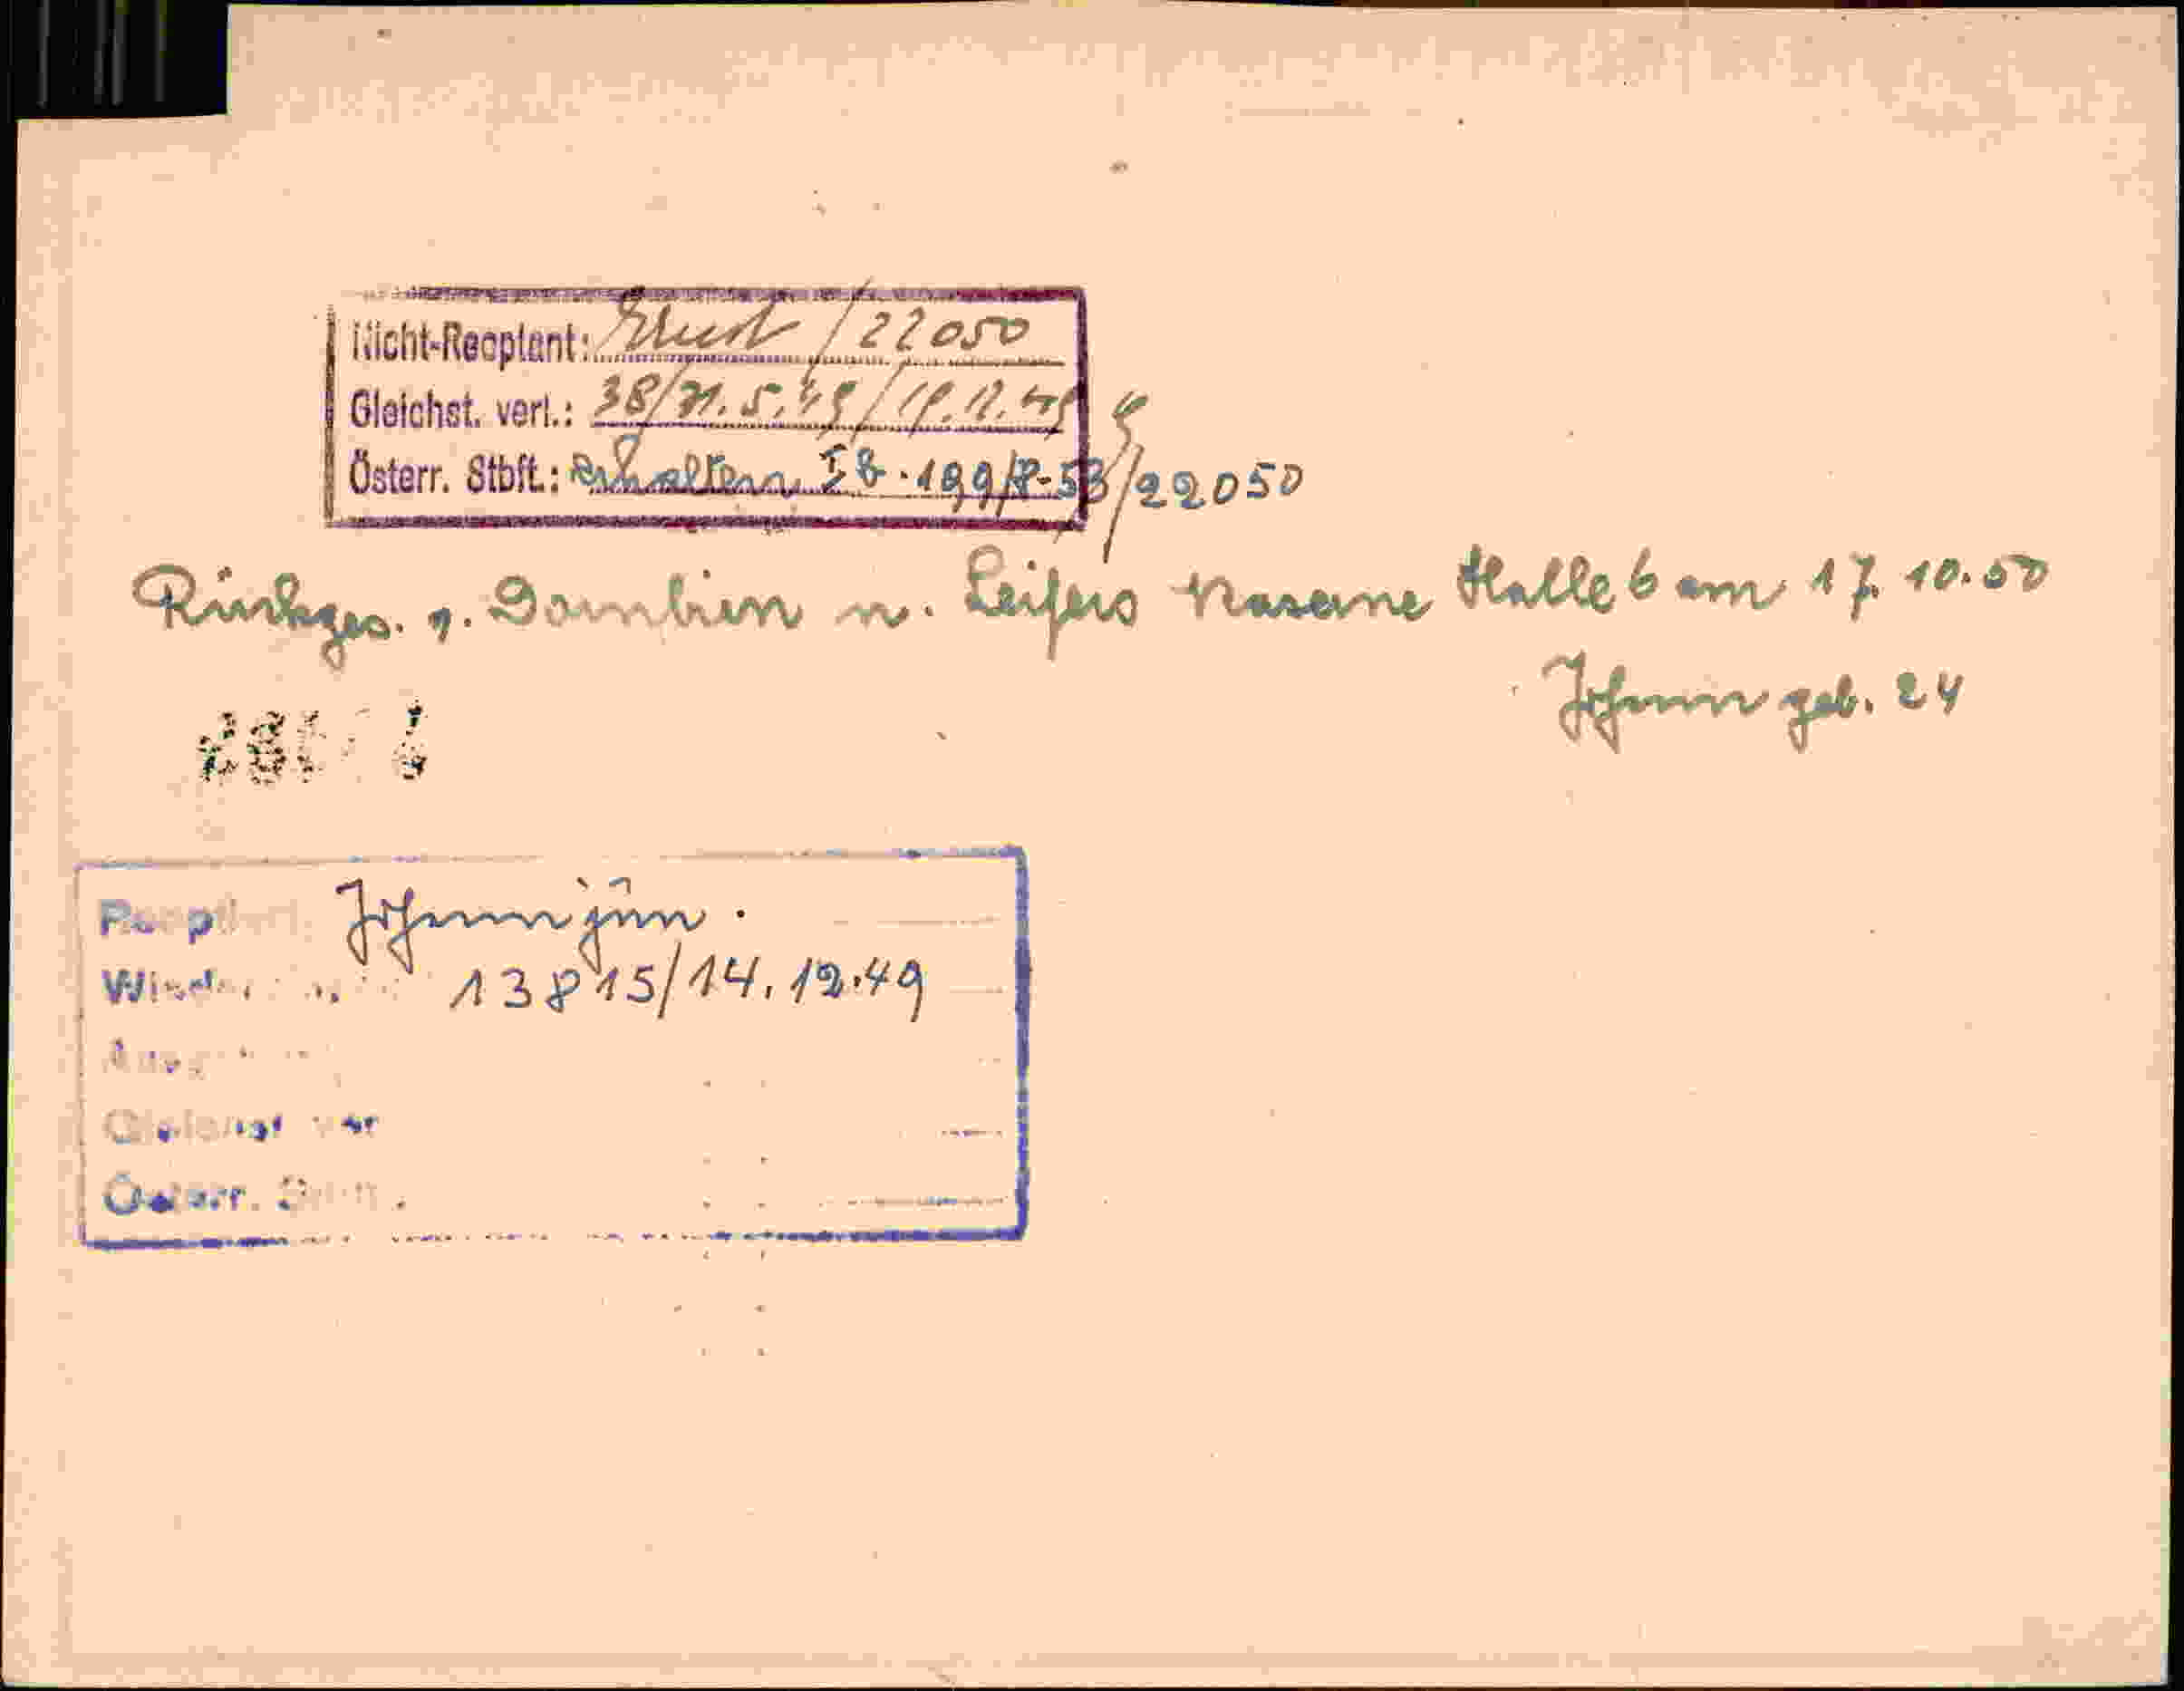 Nicht-Reoptant: Ernst / 22050
Gleichst. verl.: 38/31.5.49 / 19.12.49
Österr. Stbft.: erhalten I b. 199/8-53/22050
Rückges. v. Dornbirn n. Leifers Kaserne Halle 6 am 17. 10. 50
Johann geb. 24
Johann jun.
13815/14. 12. 49
Österr.